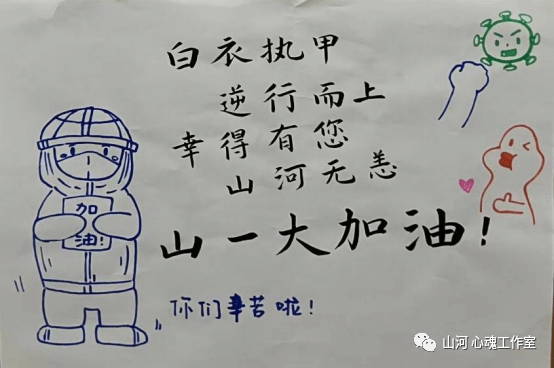 白衣执甲
逆行而上
幸得有您
山河无恙
山一大加油!
加
油!
你们辛苦啦!
山河 心魂工作室